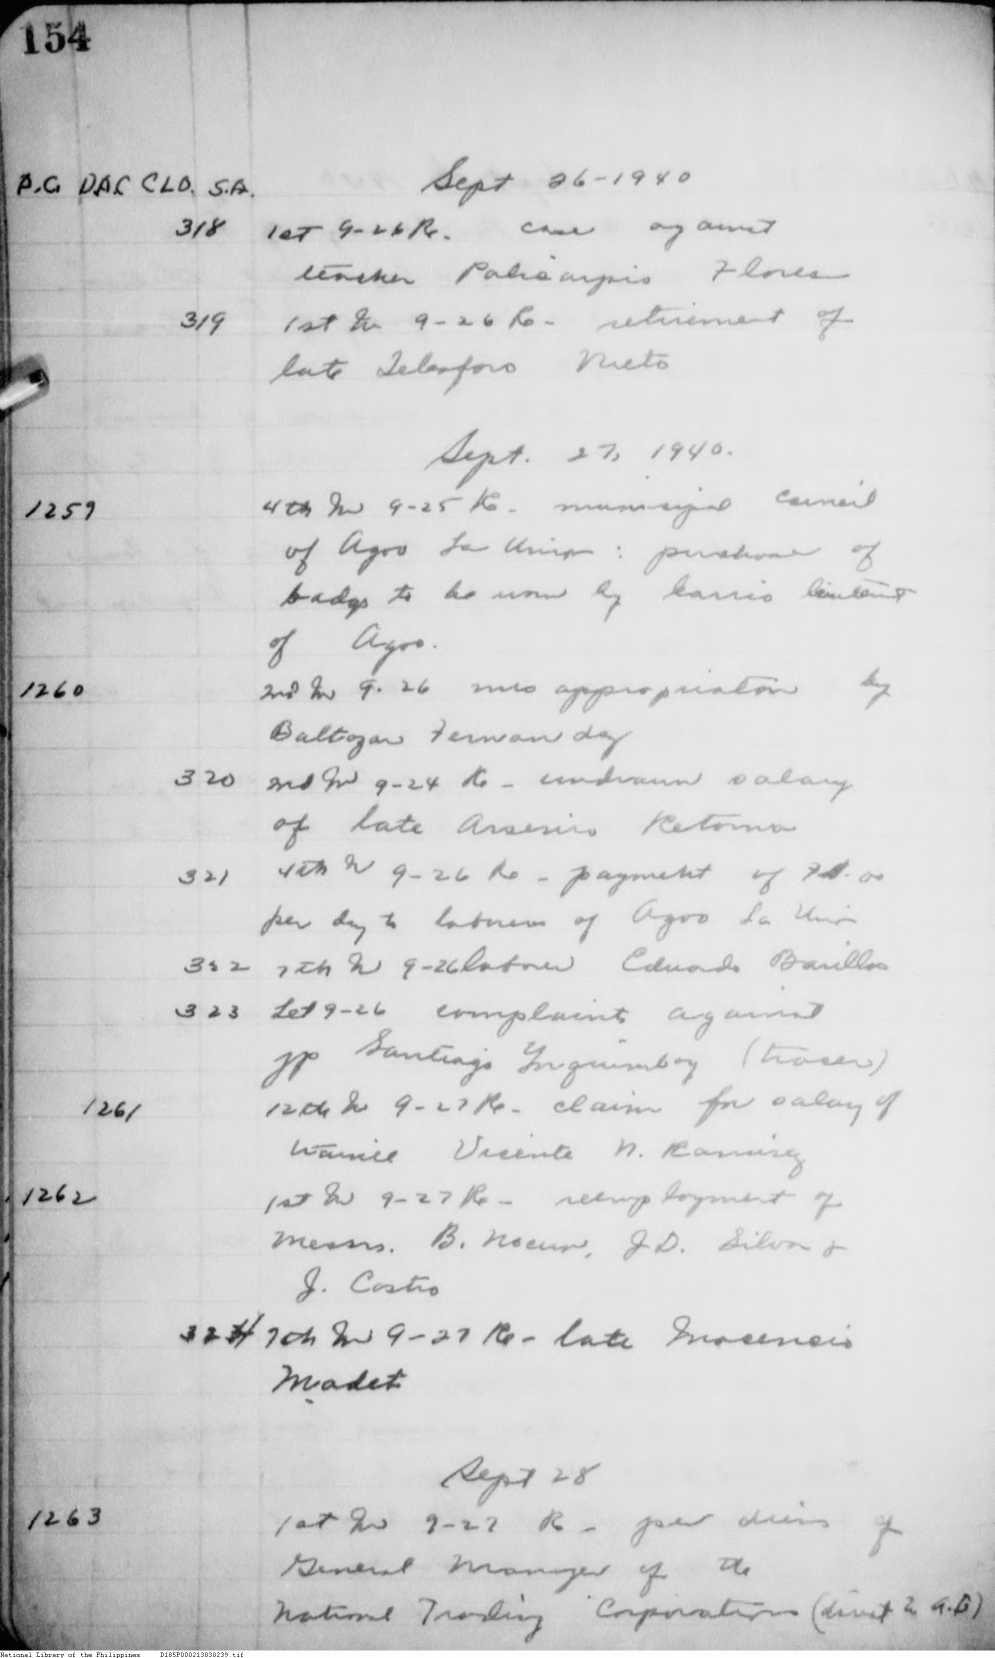 154
A.G. DAC CLD. S.A.
Sept 26-1940
318 1st 9-26 Re. case against
teacher Policarpio Flores
319 1st In 9-26 Re- retirement of
late Telesforo Nieto
Sept. 27, 1940.
1259 4th In 9-25 Re- municipal council
of Agoo La Union: purchase of
badgs to be worn by barrio lieutenant
of Agoo.
1260 2nd In 9-26 misappropriation by
Baltazar Fernandez
320 2nd In 9-24 Re- undrawn salary
of late Arsenio Retoma
321 4th In 9-26 Re- payment of
per day to laborers of Agoo La Union
322 7th In 9-26 laborer Eduardo Barillos
323 Let 9-26 complaint against
JP Santiago Yuquimboy (tracer)
1261 12th In 9-27 Re- claim for salary of
trainee Vicente N. Ramirez
1262 1st In 9-27 Re- reemployment of
Messrs. B. J.D. Silva &
J. Castro
324 7th In 9-27 Re- late Inocencio
Madet
Sept 28
1263 1st In 9-27 Re- per diems of
General Manager of the
National Trading Corporation
National Library of the Philippines D185P000213838239.tif